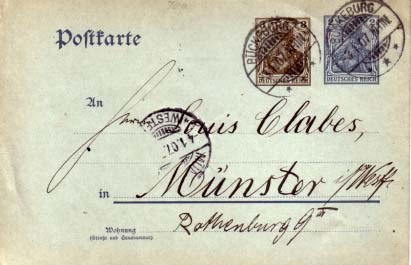 BÜCKEBURG
3
DEUTSCHES REICH
BÜCKEBURG
2
DEUTSCHES REICH
Postkarte
An
Herrn Louis Clabes,
4.1.07.
in Münster i/Westf.
Wohnung
(Straße und Hausnummer)
Rothenburg 9 III